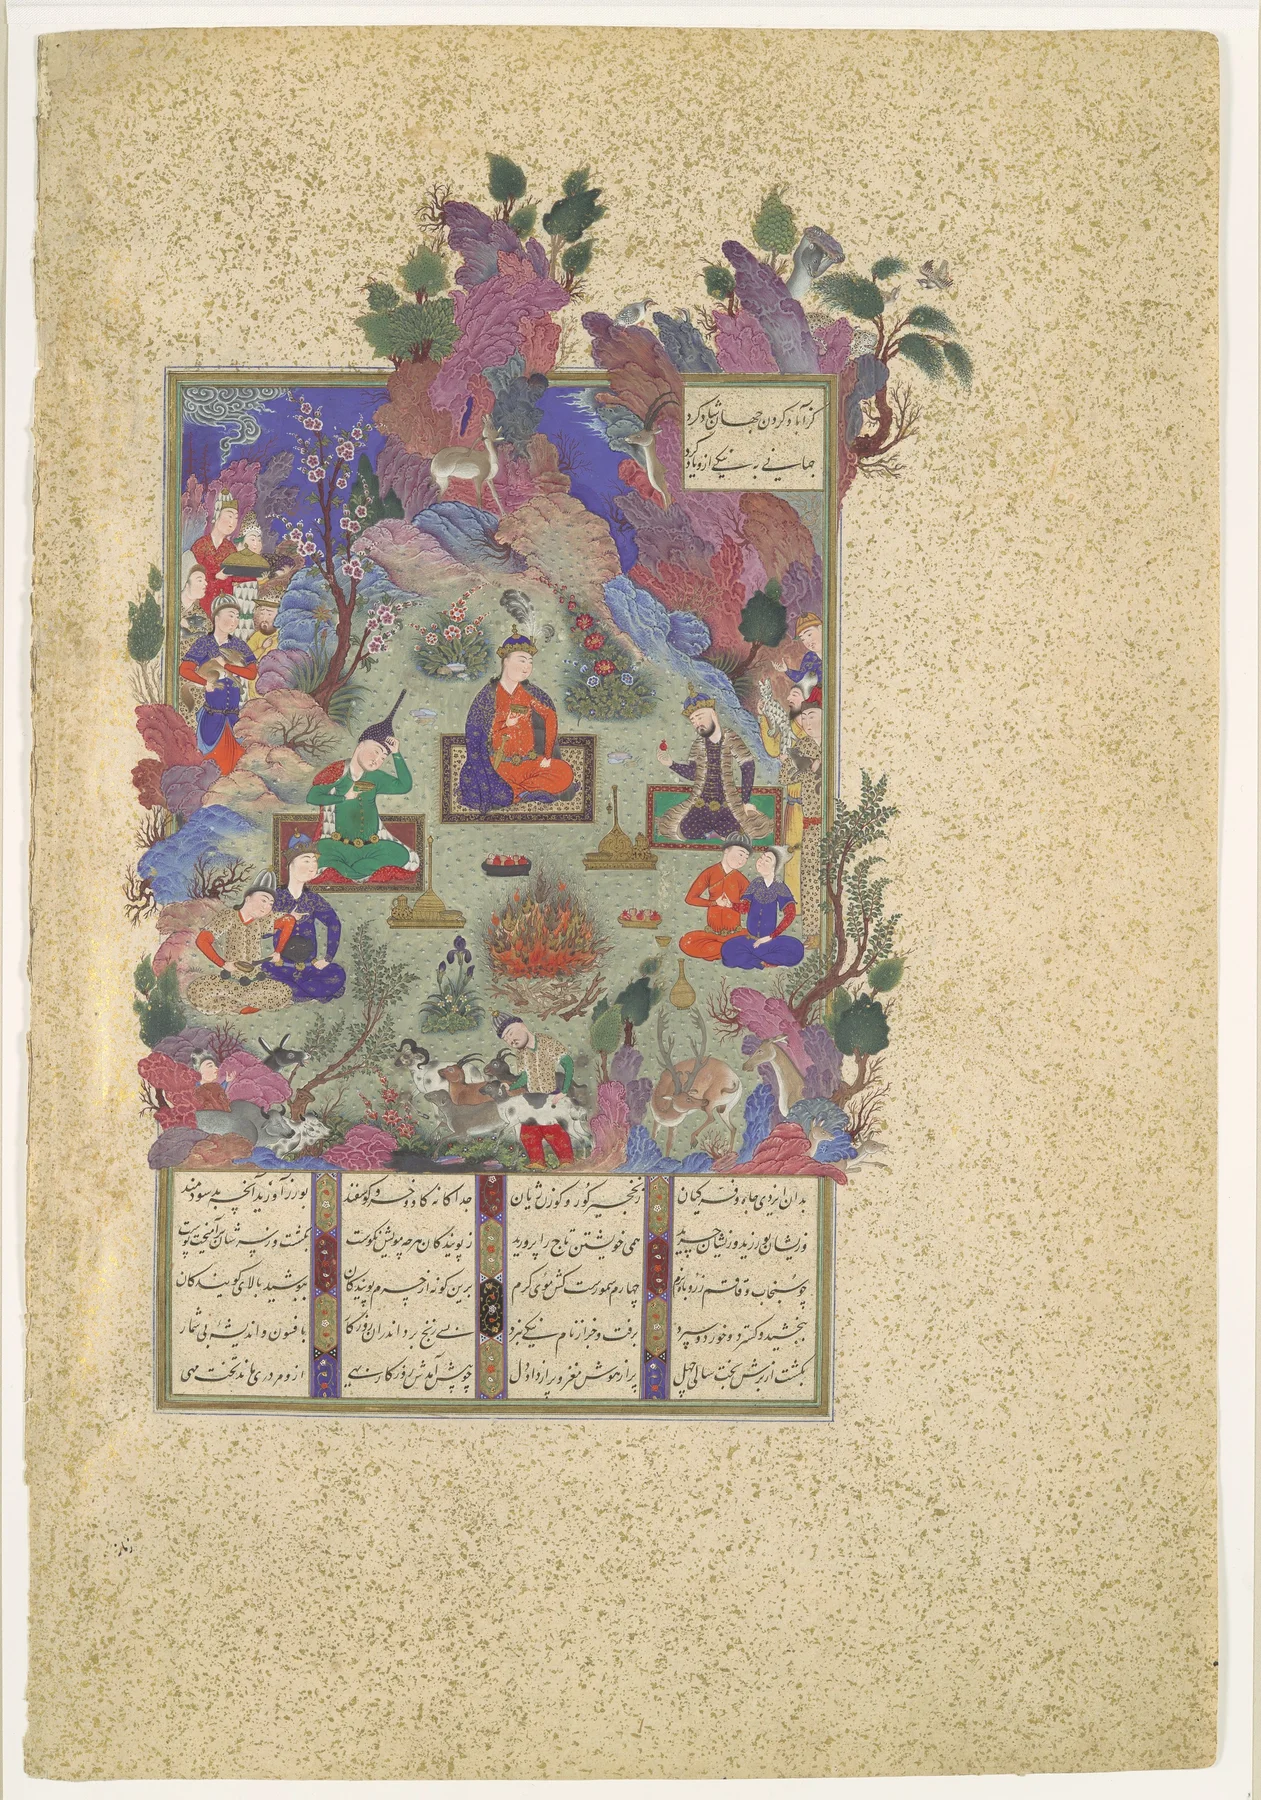 کزآباد کردن جهان شاد کرد
جهانی به نیکی ازو یاد کرد
بدان ایزدی جاه و فر کیان ز نخجیر گور و گوزن ژیان جداگانه گاو و خر و گوسفند بورز آورید آنچه بد سودمند
وزیشان بورزید وزیشان چرید همی خویشتن تاج را پرورید ز پویندگان هرچه مویش نکوست بکشت وز سرشان برآهیخت پوست
چو سنجاب و قاقم چو روباه نرم چهارم سمورست کش موی گرم برین گونه از چرم پویندگان بپوشید بالای گویندگان
ببخشید و گسترد و خورد و سپرد برفت و جز از نام نیکی نبرد بسی رنج برد اندران روزگار بافسون و اندیشه بی شمار
بگشت از برش بخت سالی چهل پر از هوش مغز و پر از داد دل چو پیش آمدش روزگار بهی ازو مردری ماند تخت مهی